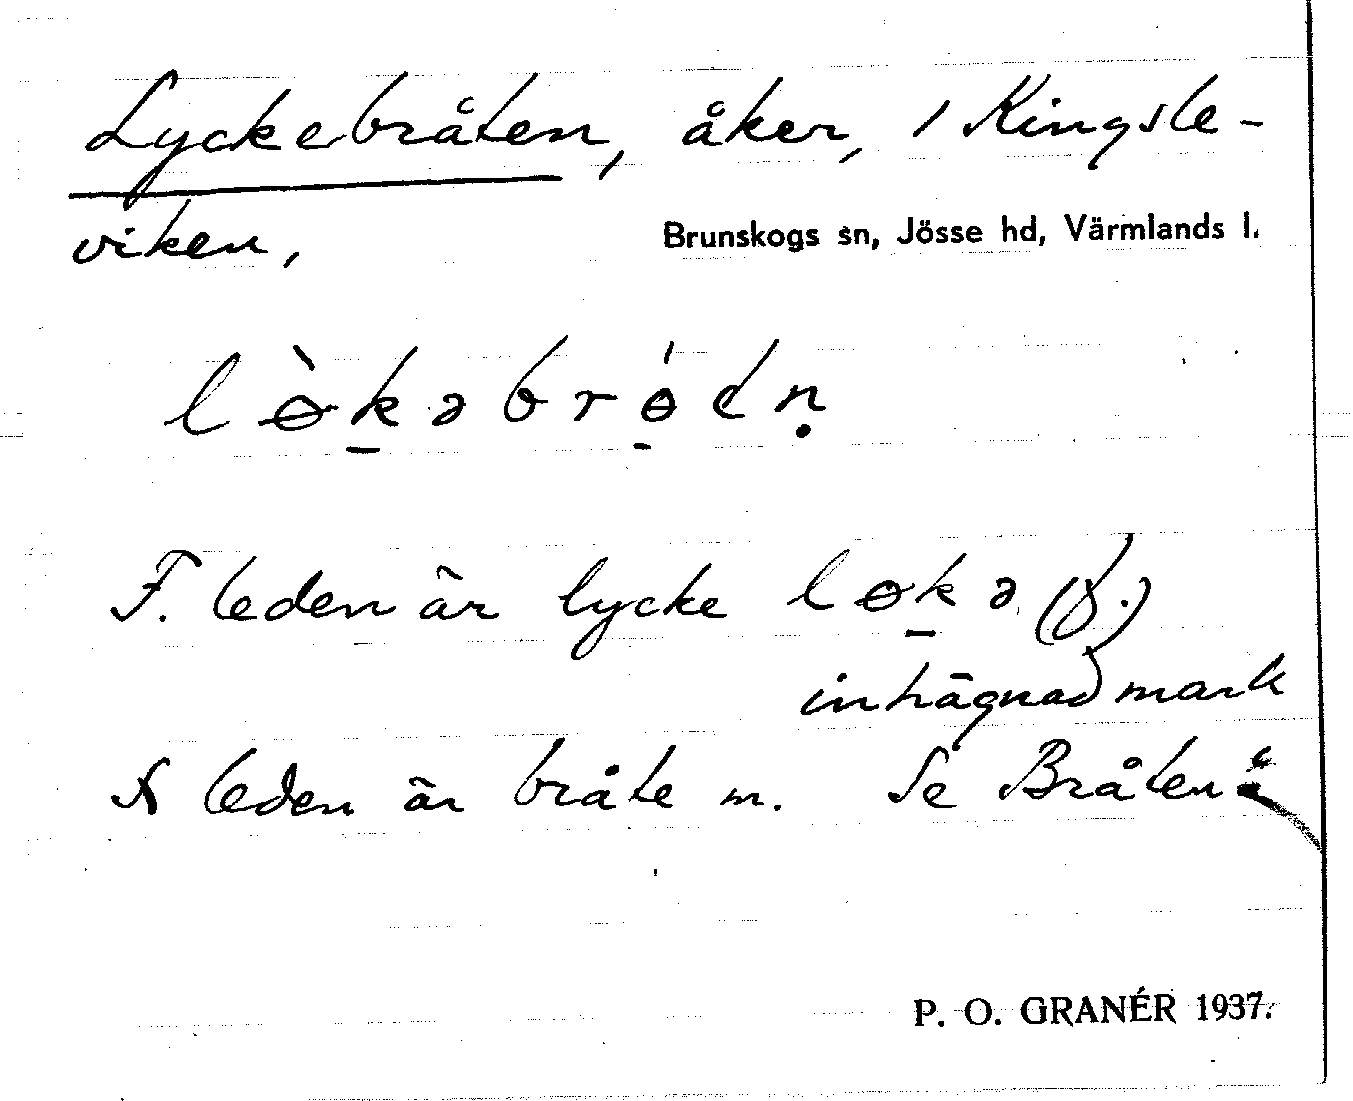 Lyckebråten, åker, / Kingsle-
viken,
Brunskogs sn, Jösse hd, Värmlands l.
lɵ̀k̠əbrɵ̠́dṇ
F. leden är lycke lɵk̠ə (f.)
inhägnad mark
S leden är bråte m. Se Bråten
P. O. GRANÉR 1937.